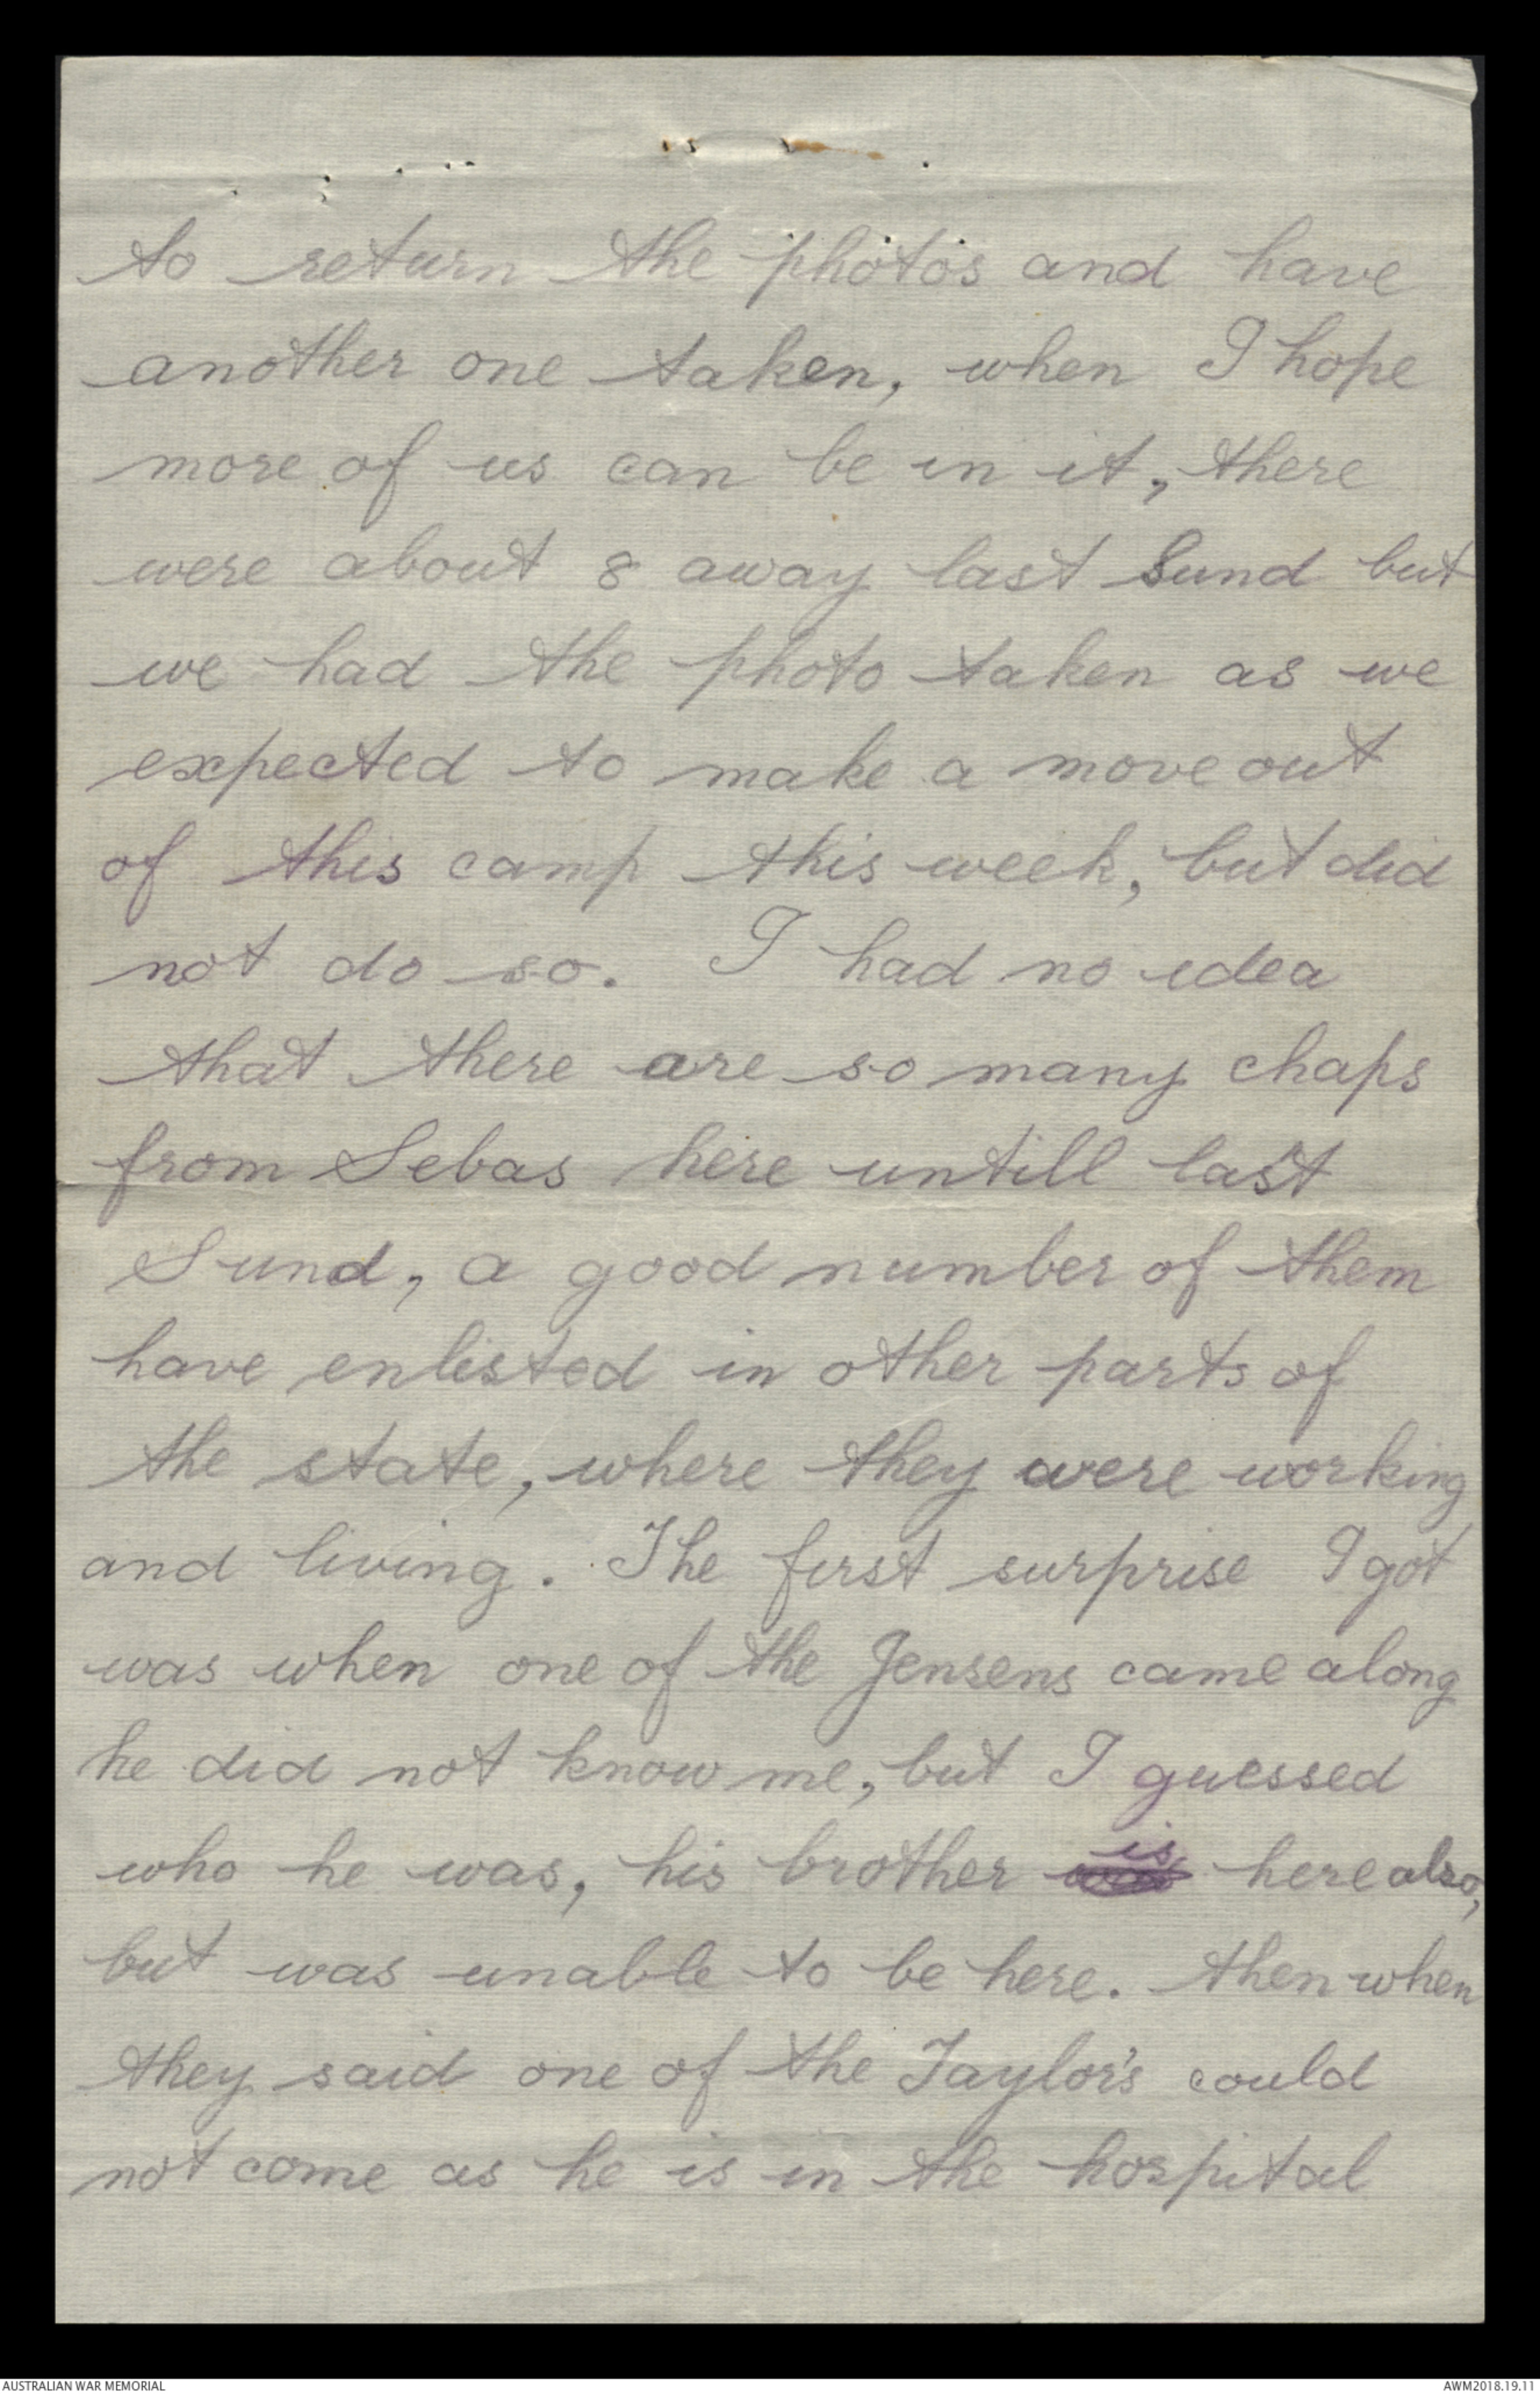 to return the photos and have
another one taken, when I hope
more of us can be in it, there
were about 8 away last Sund but
we had the photo taken as we
expected to make a move out
of this camp this week, but did
not do so. I had no idea
that there are so many chaps
from Sebas here untill last
Sund, a good number of them
have enlisted in other parts of
the state, where they were working
and living. The first surprise I got
was when one of the Jensens came along
he did not know me, but I guessed
who he was, his brother is here also,
but was unable to be here. then when
they said one of the Taylor's could
not come as he is in the hospital
AUSTRALIAN WAR MEMORIAL
AWM2018.19.11